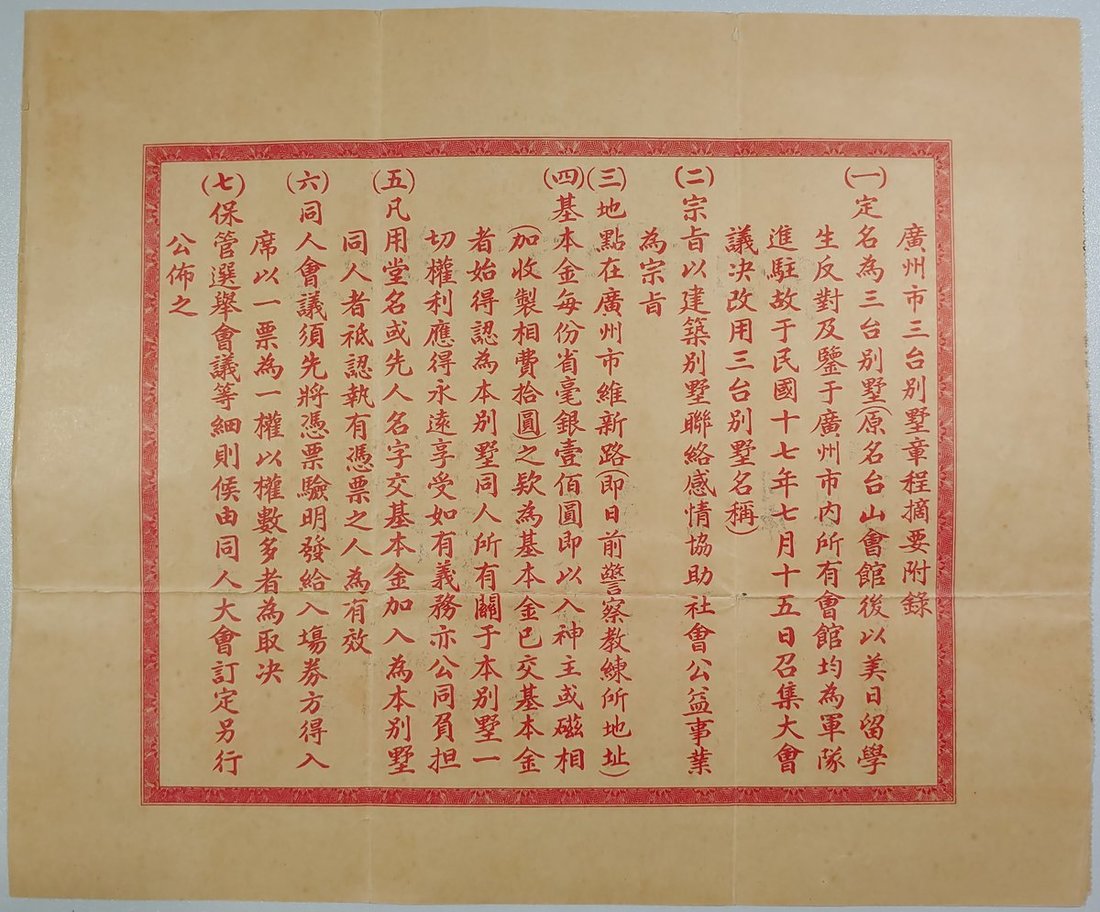 廣州市三台別墅章程摘要附錄
(一)定名為三台別墅(原名台山會館後以美日留學
生反對及鑒于廣州市內所有會館均為軍隊
進駐故于民國十七年七月十五日召集大會
議决改用三台別墅名稱)
(二)宗旨以建築別墅聯絡感情協助社會公益事業
為宗旨
(三)地點在廣州市維新路(即日前警察教練所地址)
(四)基本金每份省毫銀壹佰圓即以入神主或磁相
(加收製相費拾圓)之欵為基本金已交基本金
者始得認為本別墅同人所有關于本別墅一
切權利應得永遠享受如有義務亦公同負担
(五)凡用堂名或先人名字交基本金加入為本別墅
同人者祗認執有憑票之人為有效
(六)同人會議須先將憑票驗明發給入場券方得入
席以一票為一權以權數多者為取決
(七)保管選舉會議等細則候由同人大會訂定另行
公佈之